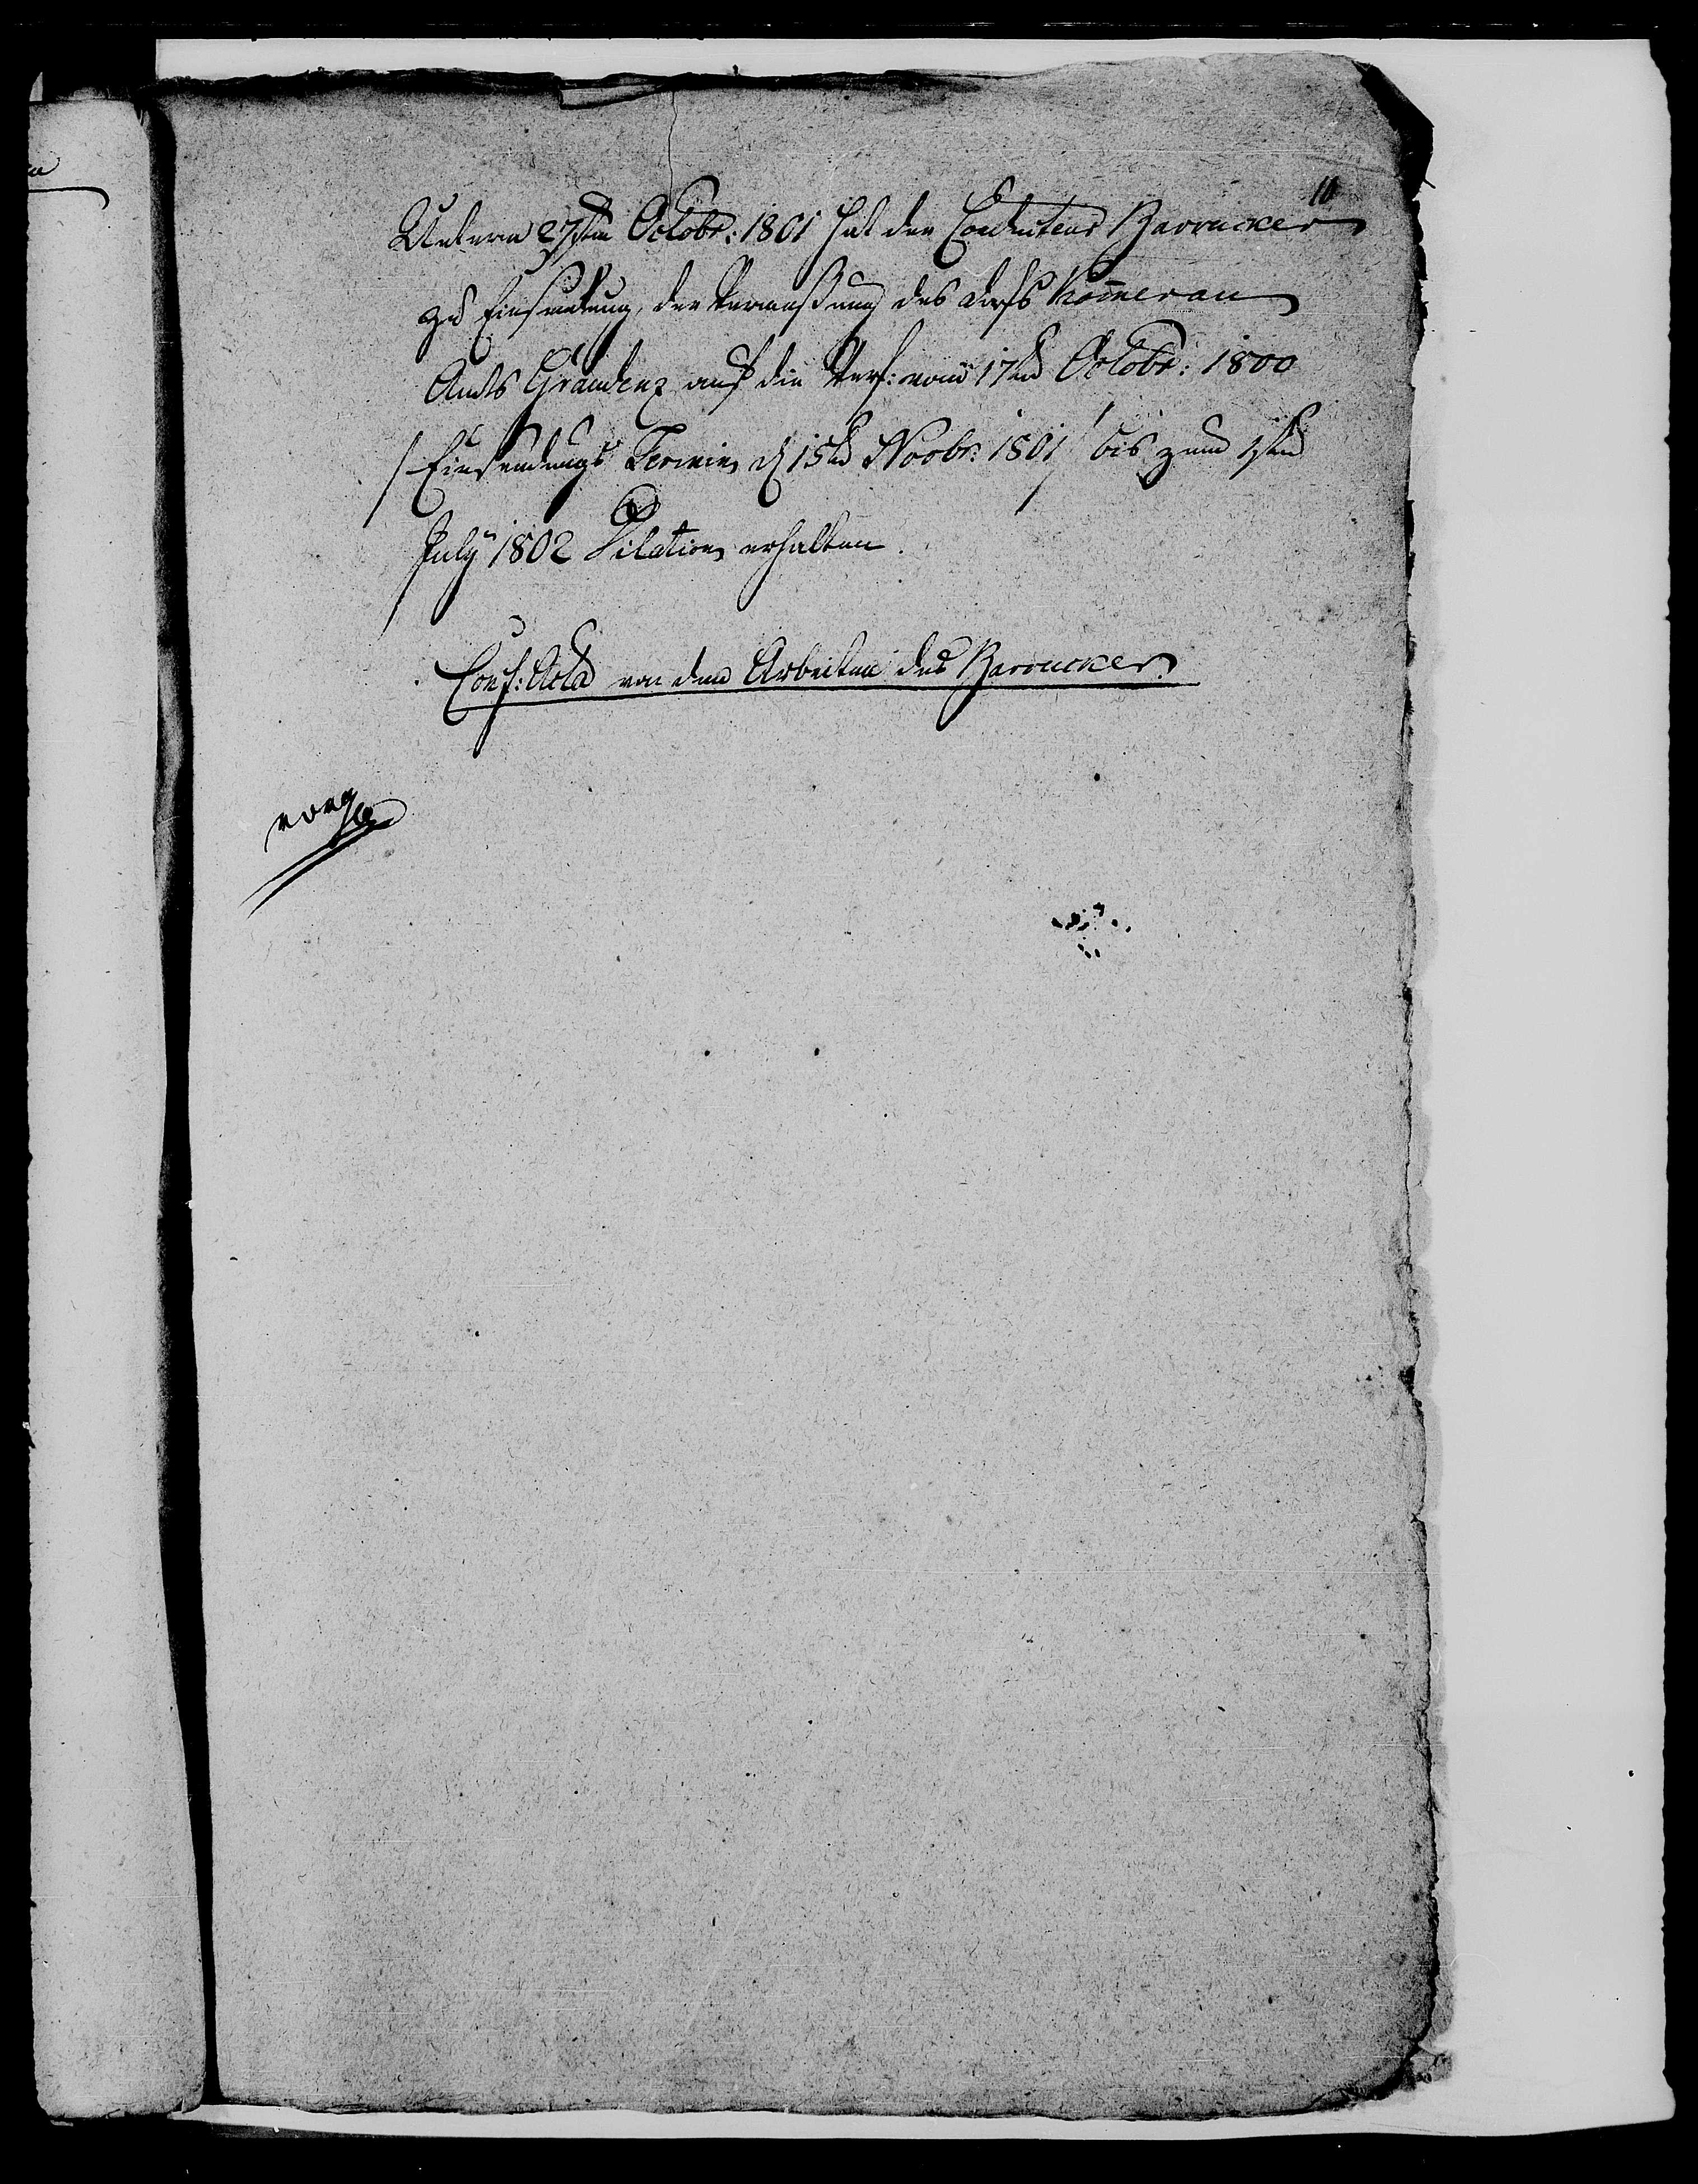 10
Unterm 27sten Octobr: 1801 hat der Conducteur Barrucker
zu Einsendung, der Vermeßung des Dorfs Kom̅erau
Amts Graudenz auf die Verf: vom 17ten Octobr: 1800
/Einsendungs Termin d 15ten Novbr: 1801/ bis zum 1sten
July 1802 Dilation erhalten.
Conf: Acta von den Arbeiten des Barrucker.